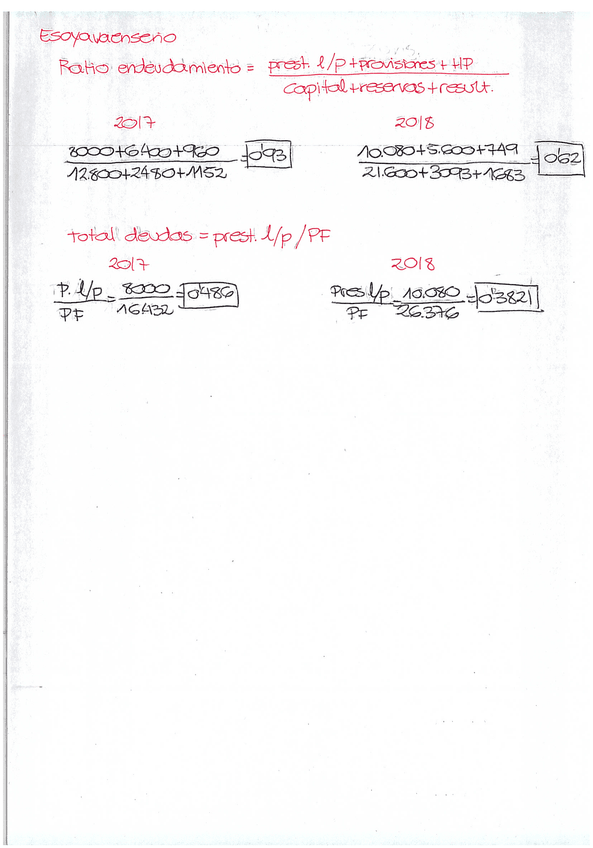 Esoyavaenserio
Ratio endeudamiento = prest. l/p + provisiones + HP
capital + reservas + result.
2017
2018
8000+6.400+960
12.800+2480+1152
= 0'93
10.080+5.600+749
21.600+3093+1683
= 0'62
total deudas = prest. l/p / PF
2017
2018
P. l/p
PF
= 8000
16.432
= 0'486
Pres l/p
PF
= 10.080
26.376
= 0'3821